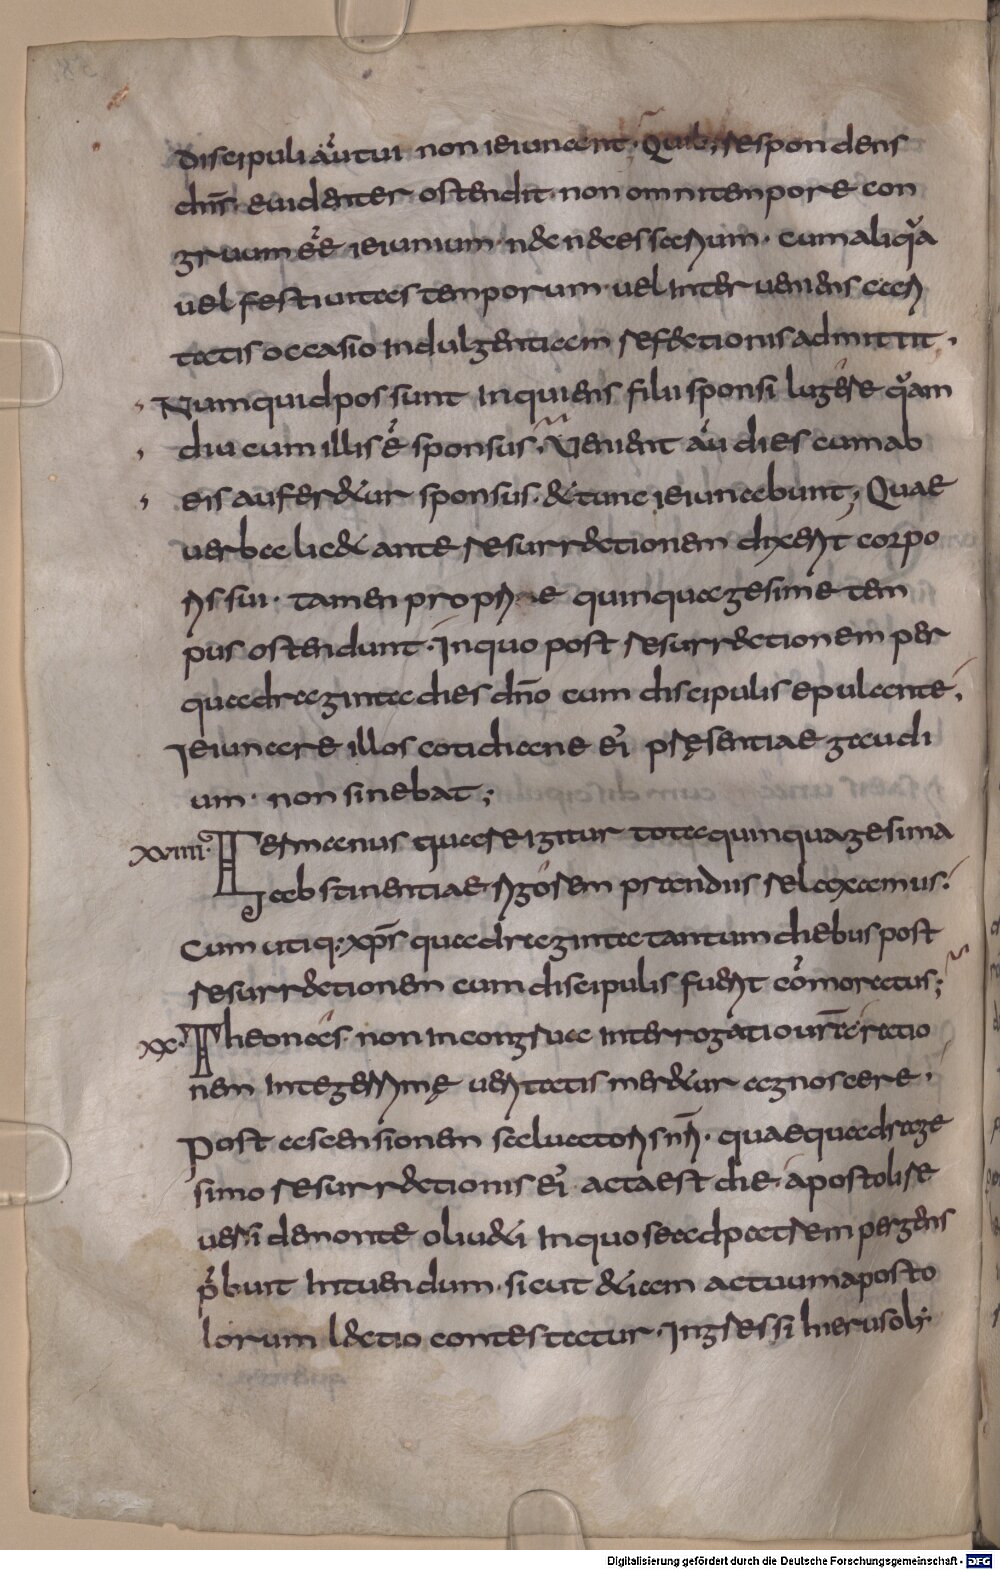 discipuli aut̃ tui non ieiunant· Quib; respondens
dn̄s· euidenter ostendit· non omni tempore con
gruum eẽ ieiunium· nec necessarium· cum aliq̃a
uel festiuitas temporum· uel interueniens cari
tatis occasio indulgentiam refectionis admittit·
Numquid possunt inquiens filii sponsi lugere q̃am
diu cum illis ẽ sponsus· Venient aũ dies cum ab
eis auferetur sponsus· & tunc ieiunabunt; Quae
uerba licet ante resurrectionem dixerit corpo
ris sui· tamen proprie quinquagesime tem
pus ostendunt· In quo post resurrectionem per
quadraginta dies dn̄o cum discipulis epulante,
Ieiunare illos cotidianae ei̓ pręsentiae gaudi
um· non sinebat;
XVIIII· Germanus quare igitur tota quinquagesima
ab stinentiae rigorem prandiis relaxamus·
Cum utiq; xp̄s quadraginta tantum diebus post
resurrectionem cum discipulis fuerit cõmoratus;
XX· Theonas· non incongrua interrogatio ur̄a· ratio
nem integerrimę ueritatis meretur agnoscere·
Post ascensionem saluatoris nr̄i· quae quadrage
simo resurrectionis ei̓ acta est die· apostoli re
uersi de monte oliueti in quo se ad patrem pergens
p̃buit intuendum· sicut etiam actuum aposto
lorum lectio contestatur· Ingressi hierusoly
Digitalisierung gefördert durch die Deutsche Forschungsgemeinschaft - DFG